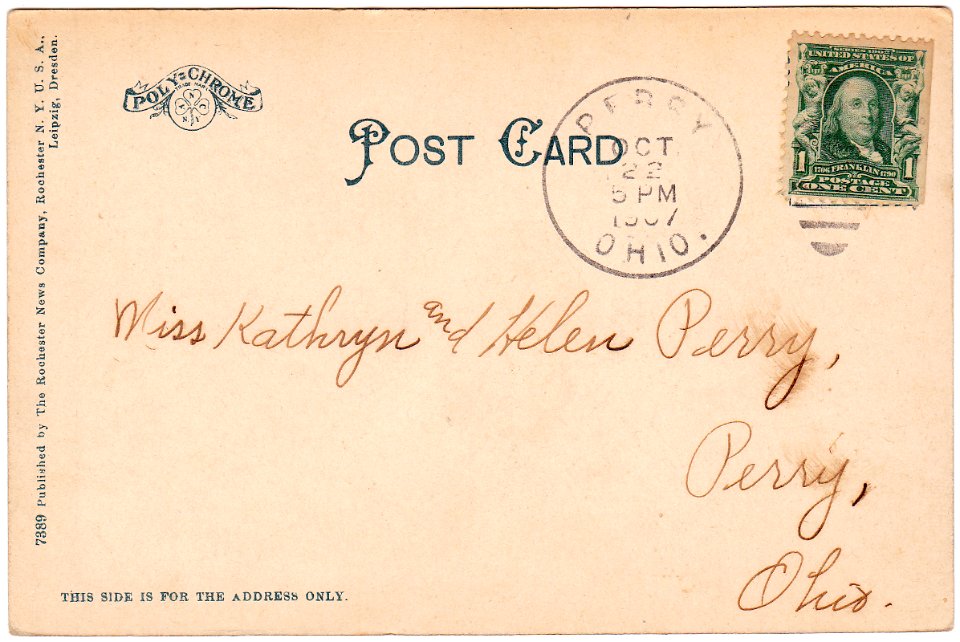 7389 Published by The Rochester News Company, Rochester N. Y. U. S. A.,
Leipzig, Dresden.
POLY=CHROME
TRADE MARK
POST CARD
PERRY
OCT
22
5 PM
1907
OHIO.
SERIES 1902
UNITED STATES OF
AMERICA
1 1706 FRANKLIN 1790 1
POSTAGE
ONE CENT
Miss Kathryn and Helen Perry,
Perry,
Ohio.
THIS SIDE IS FOR THE ADDRESS ONLY.